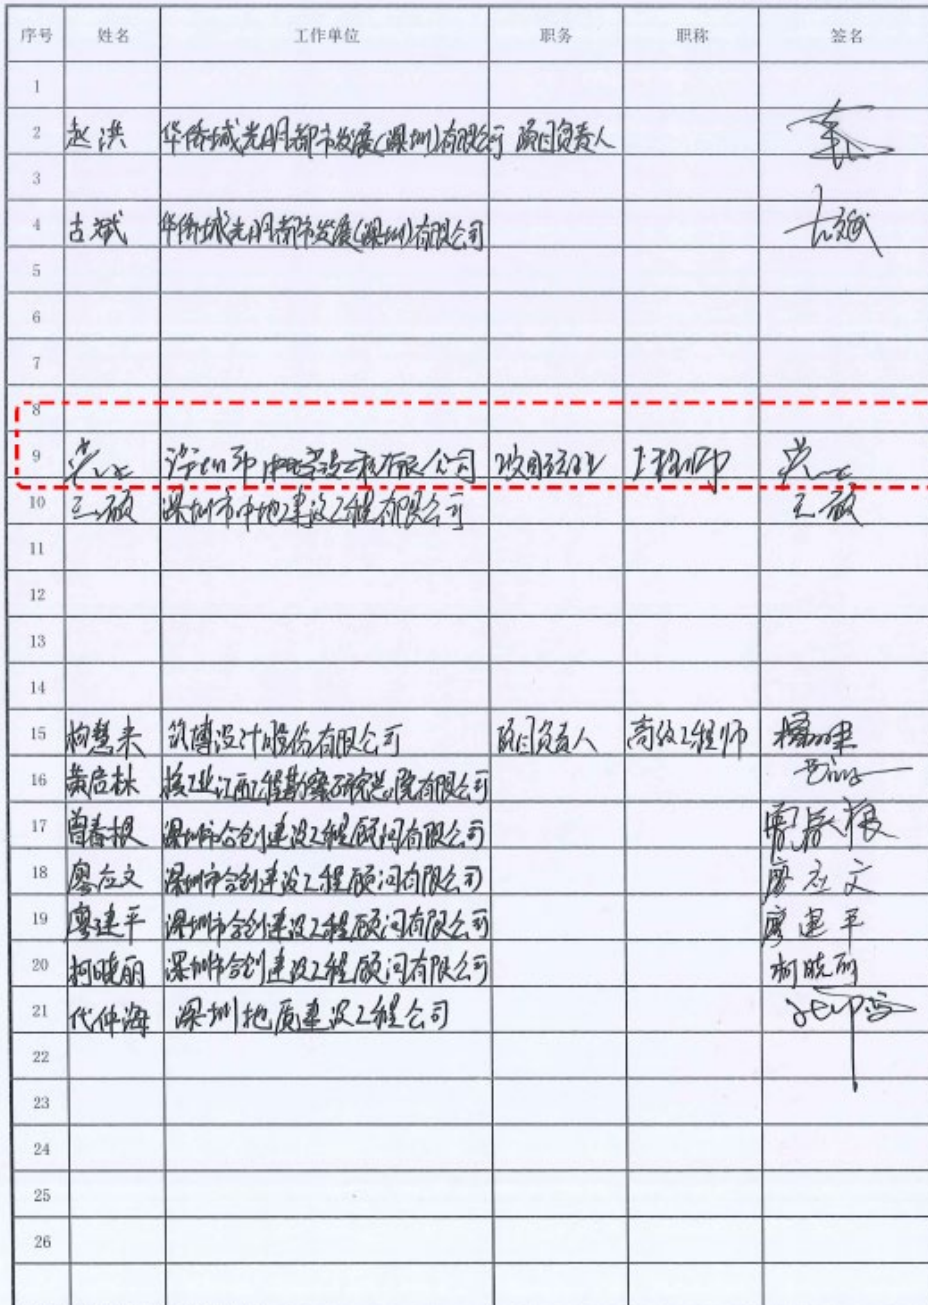 序号 姓名 工作单位 职务 职称 签名
1
2 赵洪 华侨城光明都市发展(深圳)有限公司 项目负责人
3
4 古斌 华侨城光明都市发展(深圳)有限公司 古斌
5
6
7
8
9 有限公司 项目经理 工程师
10 王硕 深圳市中地建设工程有限公司 王硕
11
12
13
14
15 杨慧来 筑博设计股份有限公司 项目负责人 高级工程师
16 黄启林 核工业江西工程勘察研究总院有限公司
17 曾春根 深圳市合创建设工程顾问有限公司 曾春根
18 廖应文 深圳市合创建设工程顾问有限公司 廖应文
19 廖建平 深圳市合创建设工程顾问有限公司 廖建平
20 柯晓丽 深圳市合创建设工程顾问有限公司 柯晓丽
21 代仲海 深圳地质建设工程公司
22
23
24
25
26